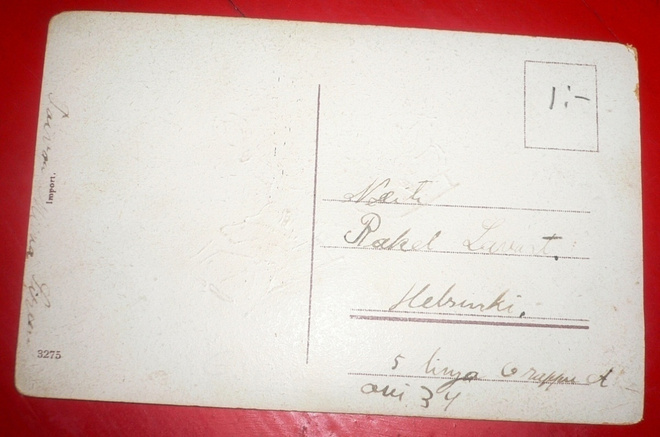 1:-
Neiti
Rakel
Helsinki.
5 linja 6 rappu A
ovi 34
Import.
3275